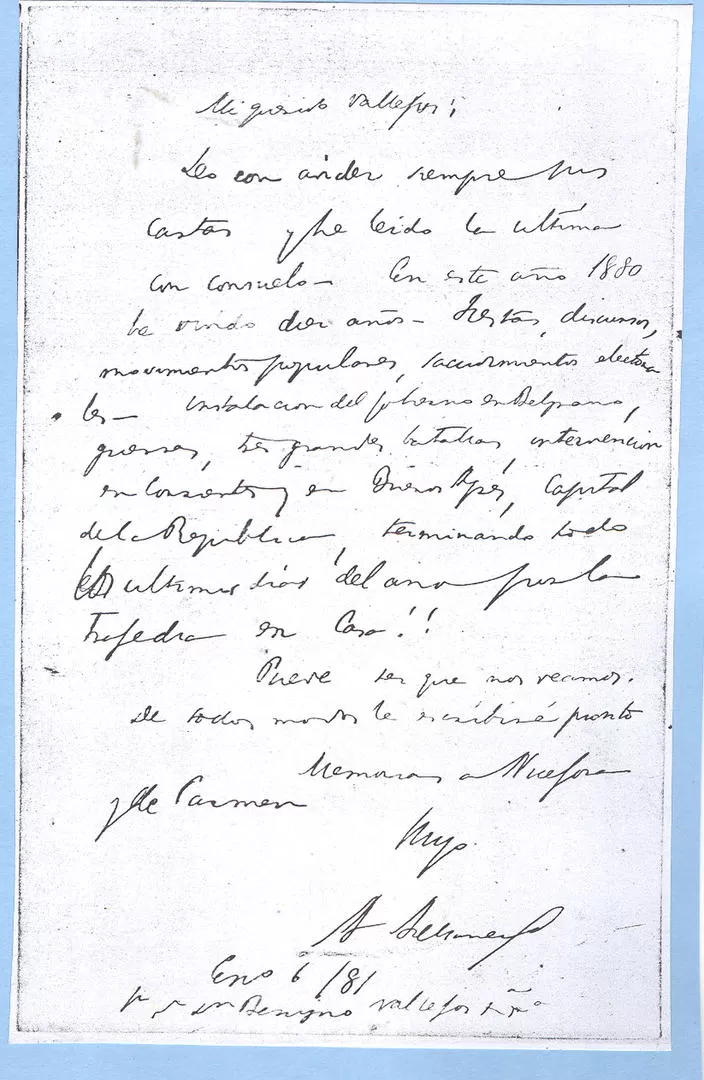 Mi querido Vallejos;
Leo con avidez siempre sus
cartas y he leido la ultima
con consuelo – En este año 1880
he vivido diez años – Fiestas, discursos,
movimientos populares, sacudimientos electora
les – instalacion del gobierno en Belgrano,
guerras, tres grandes batallas, intervencion
en Corrientes y en Buenos Ayres, Capital
de la Republica, terminando todo
los ultimos dias del año por la
trajedia en casa!!
Puede ser que nos veamos.
De todos modos le escribiré pronto
Memorias a
y de Carmen
Suyo
A
Eno 6/81
Sr Dn Benigno Vallejos